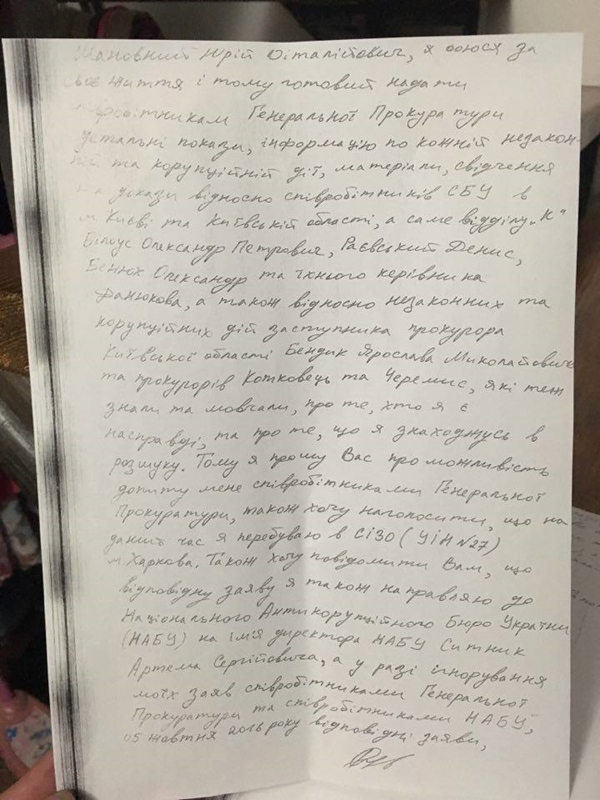 Шановний Юрій Віталійович, я боюся за
своє життя і тому готовий надати
співробітникам Генеральної Прокуратури
детальні покази, інформацію по кожній незакон-
ній та корупційній дії, матеріали, свідчення
та докази відносно співробітників СБУ в
м. Києві та Київській області, а саме відділу "К"
Білоус Олександр Петрович, Раєвський Денис,
Бенюх Олександр та їхнього керівника
Фанюкова, а також відносно незаконних та
корупційних дій заступника прокурора
Київської області Бендик Ярослава Миколайовича
та прокурорів Котковець та Черемис, які теж
знали та мовчали, про те, хто я є
насправді, та про те, що я знаходжусь в
розшуку. Тому я прошу Вас про можливість
допиту мене співробітниками Генеральної
Прокуратури, також хочу наголосити, що на
даний час я перебуваю в СІЗО (УІН №27)
м. Харкова. Також хочу повідомити Вам, що
відповідну заяву я також направляю до
Національного Антикорупційного Бюро України
(НАБУ) на імʼя директора НАБУ Ситник
Артема Сергійовича, а у разі ігнорування
моїх заяв співробітниками Генеральної
Прокуратури та співробітниками НАБУ,
05 жовтня 2016 року відповідні заяви,